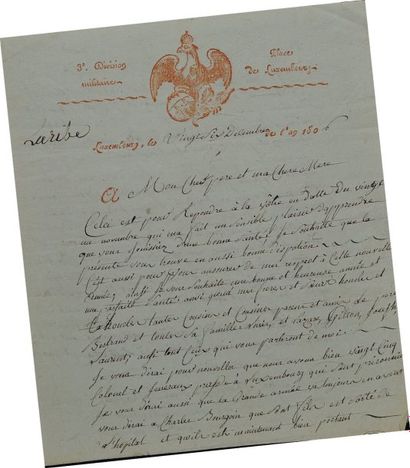 3e Division
militaire
Place
de Luxembourg
Laribe
Luxembourg, le Vingt Six Décembre de l'an 1806
A Mon Cher pere et ma Chere Mere
Celle est pour Repondre à la Votre en Datte du vingt
un novembre qui ma fait un Sensible plaisir d'apprendre
que vous Jouissiez d'une bonne Santé, Je Souhaite que la
presente vous trouve en aussi bonne Disposition
C'est aussi pour vous assurer de mes respect à Celle nouvelle
année, ainsi Je vous Souhaite une bonne et heureuse année,
une parfaite Santé ainsi qu'a mes frere et Sœur
toute Cousins et Cousines parens et amis
Bertrand et toute Sa famille Gitton, Joseph
Laurent, aussi tout Ceux qui vous parleront de moi
Je vous dirai pour nouvelles que nous avons bien vingt Cinq
Colonel et à Luxembourg qui Sont prisonnier
Je vous dirai aussi que la Grande armée va toujours en avant
vous direz à Charles Bourgoin que Son filor est Sorti de
l'hopital et qu'il est maintenant bien portant